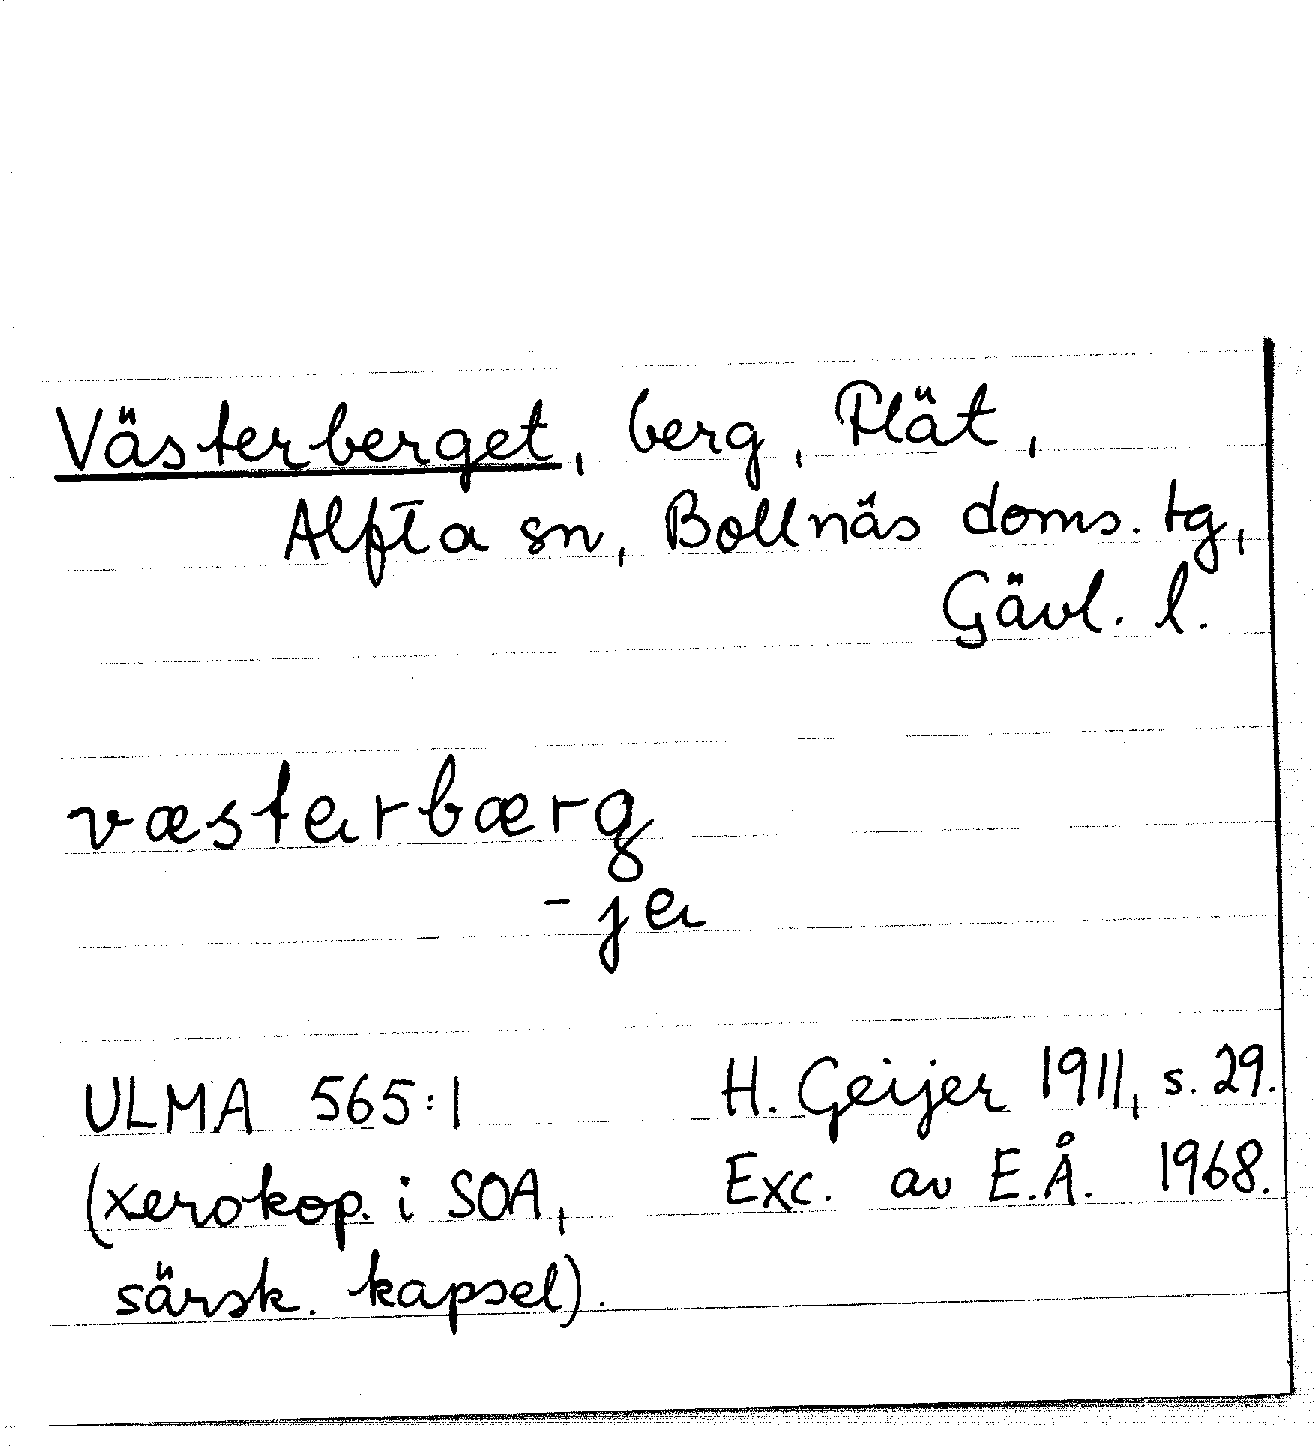 Västerberget, berg, Flät,
Alfta sn, Bollnäs doms. tg,
Gävl. l.
væsterbærg
- je
ULMA 565:1
H. Geijer 1911, s. 29.
(xerokop. i SOA,
Exc. av E.Å. 1968.
särsk. kapsel).